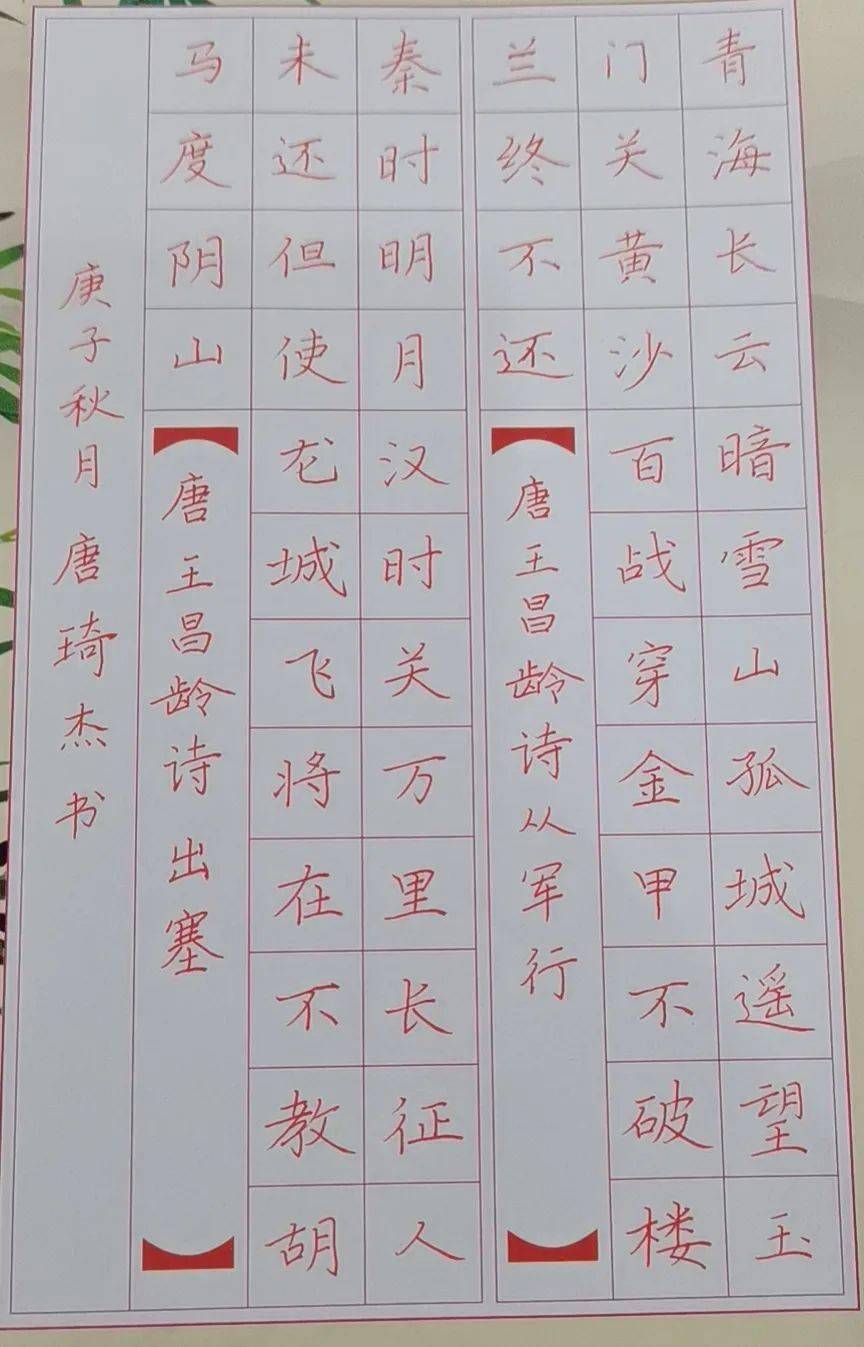 青海长云暗雪山孤城遥望玉
门关黄沙百战穿金甲不破楼
兰终不还
唐王昌龄诗从军行
秦时明月汉时关万里长征人
未还但使龙城飞将在不教胡
马度阴山
唐王昌龄诗 出塞
庚子秋月 唐琦杰书